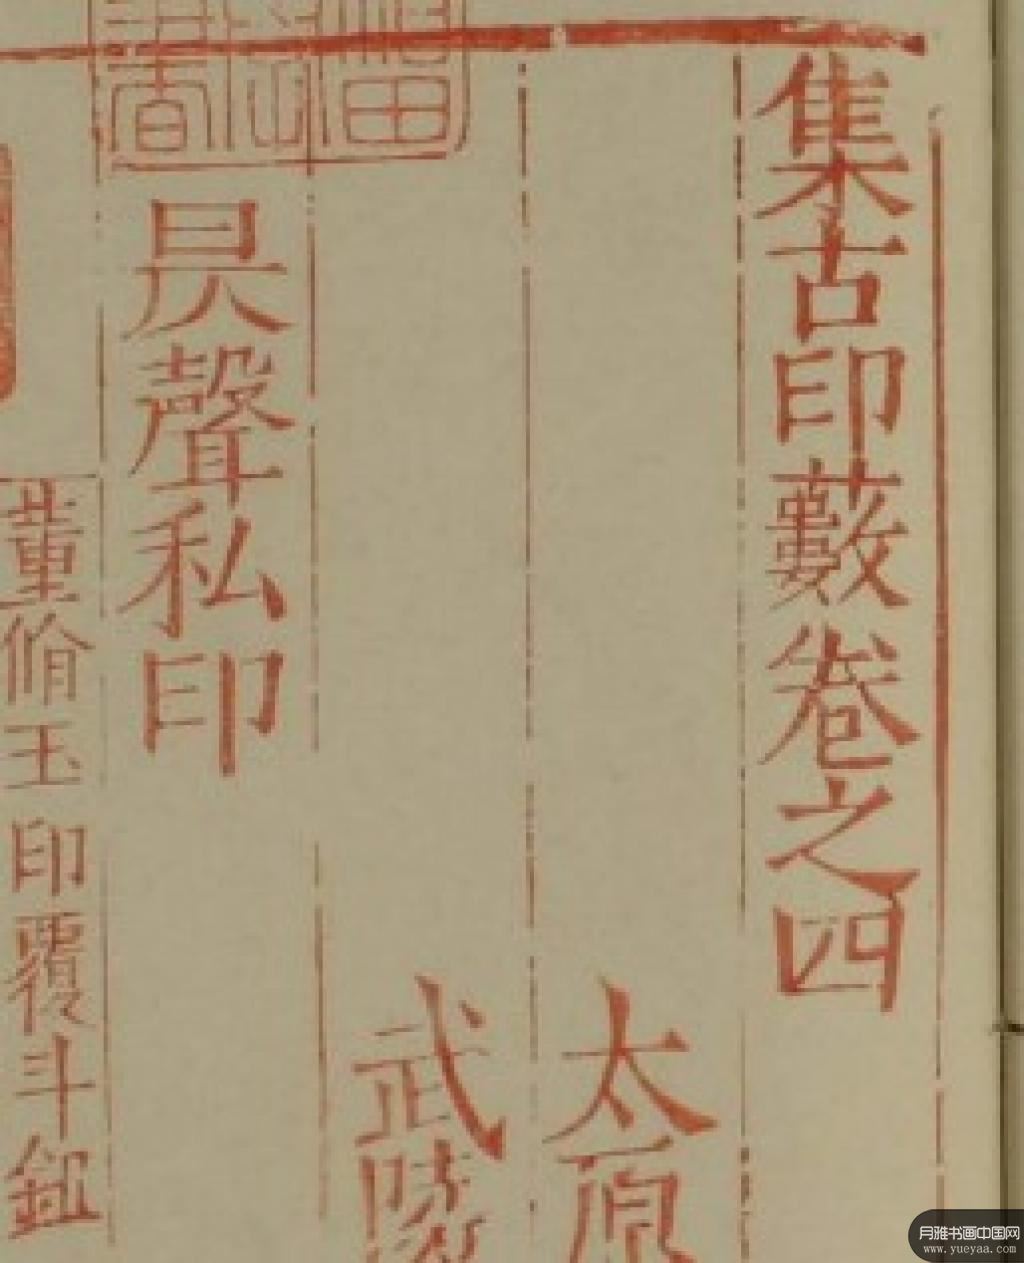 集古印藪卷之四
太原
武陵
聲私印
董脩玉印覆斗鈕
月雅书画中国网
www.yueyaa.com